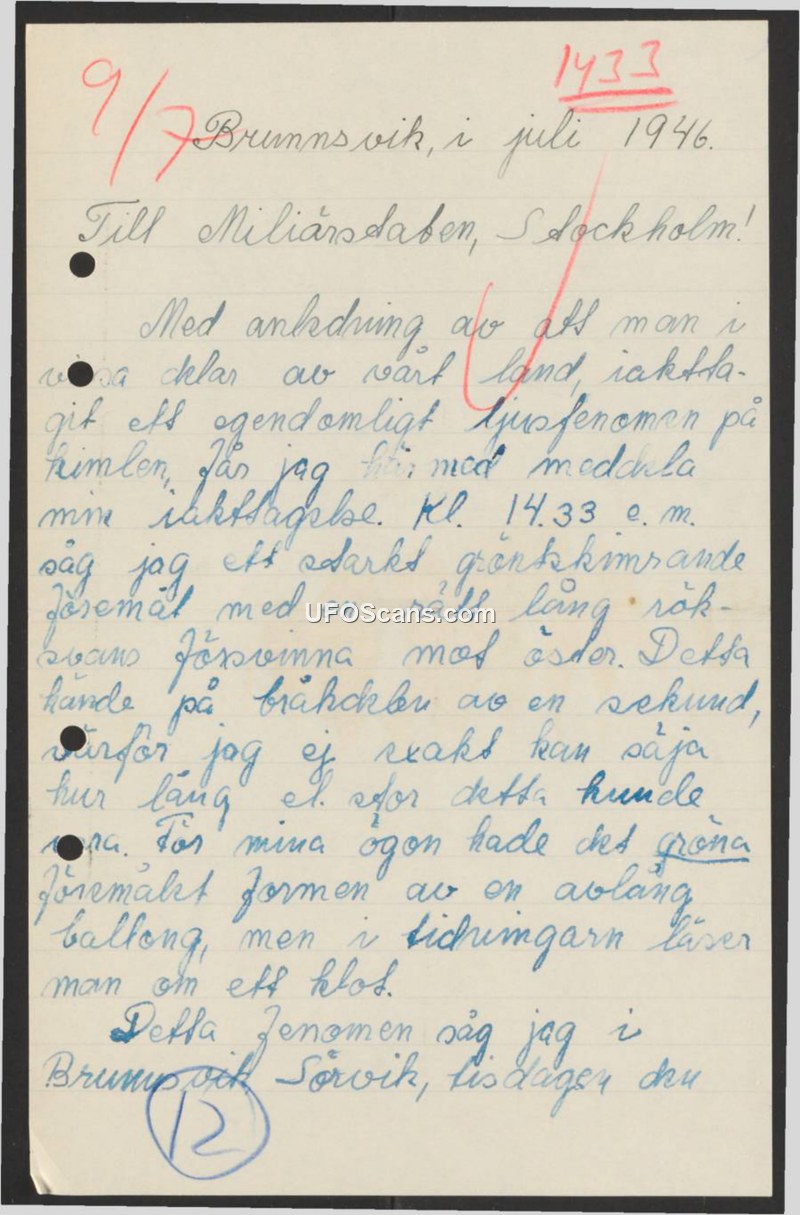 9/7
1433
Brunnsvik, i juli 1946.
Till Miliärstaben, Stockholm!
Med anledning av att man i
vissa delar av vårt land, iaktta-
git ett egendomligt ljusfenomen på
himlen, får jag härmed meddela
min iakttagelse. Kl. 14.33 e. m.
såg jag ett starkt grönskimrande
föremål med en rätt lång rök-
svans försvinna mot öster. Detta
hände på bråkdelen av en sekund,
varför jag ej exakt kan säja
hur lång el. stor detta kunde
vara. För mina ögon hade det gröna
föremålet formen av en avlång
ballong, men i tidningarn läser
man om ett klot.
Detta fenomen såg jag i
Brunnsvik, Sörvik, tisdagen den
12
UFOScans.com